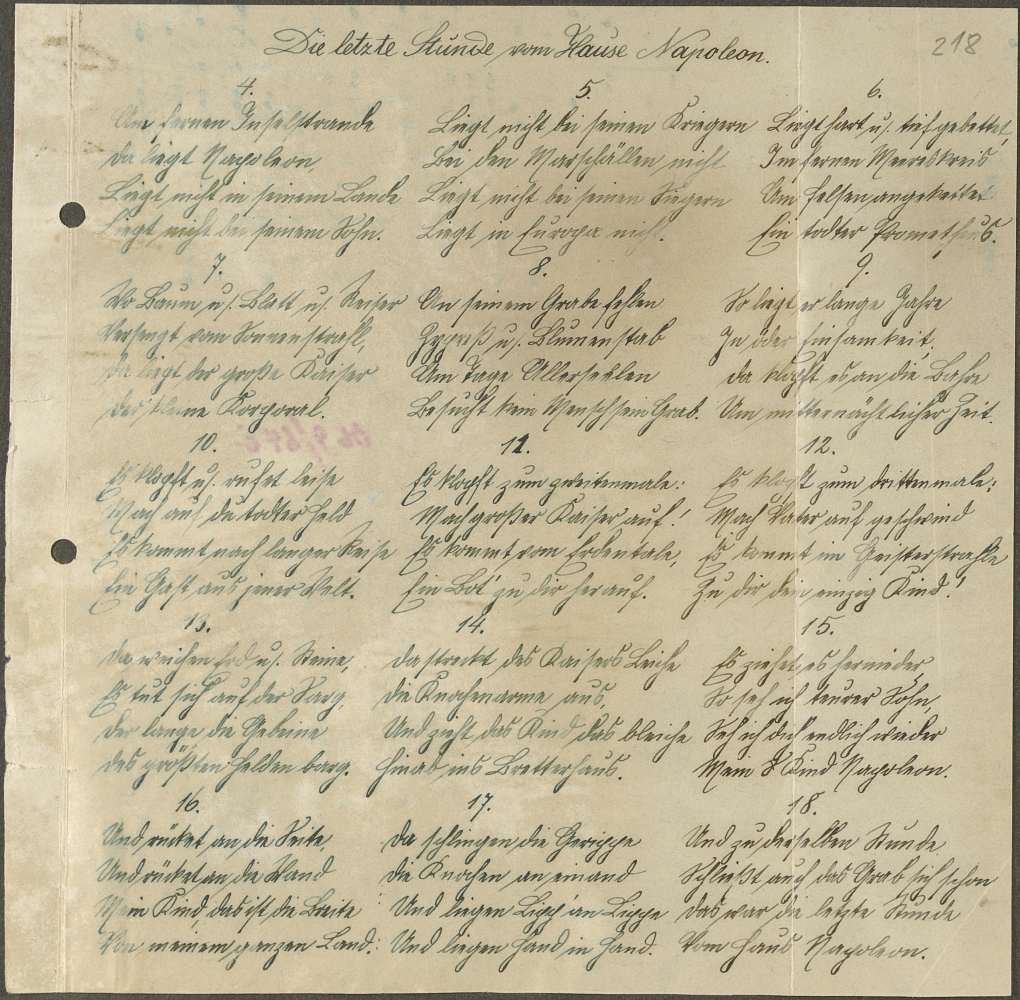 Die letzte Stunde vom Hause Napoleon.
218
4.
Am fernen Inselstrande
da liegt Napoleon,
Liegt nicht in seinem Lande
Liegt nicht bei seinem Sohn.
5.
Liegt nicht bei seinen Kriegern
Bei den Marschällen nicht
Liegt nicht bei seinen Siegern
Liegt in Europa nicht.
6.
Liegt hart u. tief gebettet,
Im fernen Meereskreis
Am Felsen angekettet
Ein todter Prometheus.
7.
Wo Baum u. Blatt u. Reiser
Versengt vom Sonnenstrahl,
Da liegt der große Kaiser
der kleine Korporal.
8.
An seinem Grabe fehlen
Zypreß u. Blumenstab
Am Tage Allerseelen
Besucht kein Mensch sein Grab.
9.
So liegt er lange Jahre
In öder Einsamkeit,
da klopft es an die Bahre
Um mitternächtlicher Zeit.
10.
Es klopft u. rufet leise
Wach auf du todter Held
Es kommt nach langer Reise
Ein Gast aus jener Welt.
11.
Es klopft zum zweitenmale:
Wach großer Kaiser auf!
Es kommt vom Erdentale,
Ein Bot' zu dir herauf.
12.
Es klopft zum drittenmale:
Wach Vater auf geschwind
Es kommt im Geisterstrahle
Zu dir dein einzig Kind!
13.
Da weichen Erd u. Steine,
Es tut sich auf der Sarg,
Der lange die Gebeine
des größten Helden barg.
14.
da streckt des Kaisers Leiche
die Knochenarme aus,
Und zieht das Kind das bleiche
Hinab ins Bretterhaus.
15.
Er ziehet es hernieder
So seh ich teurer Sohn,
Seh ich dich endlich wieder
Mein Kind Napoleon.
16.
Und rücket an die Seite,
Und rücket an die Wand
Mein Kind, das ist die Breite
Von meinem ganzen Land:
17.
da schlingen die Gerippe
die Knochen an einand
Und liegen Lipp' an Lippe
Und liegen Hand in Hand.
18.
Und zu derselben Stunde
Schließt auch das Grab sich schon
das war die letzte Stunde
Vom Haus Napoleon.